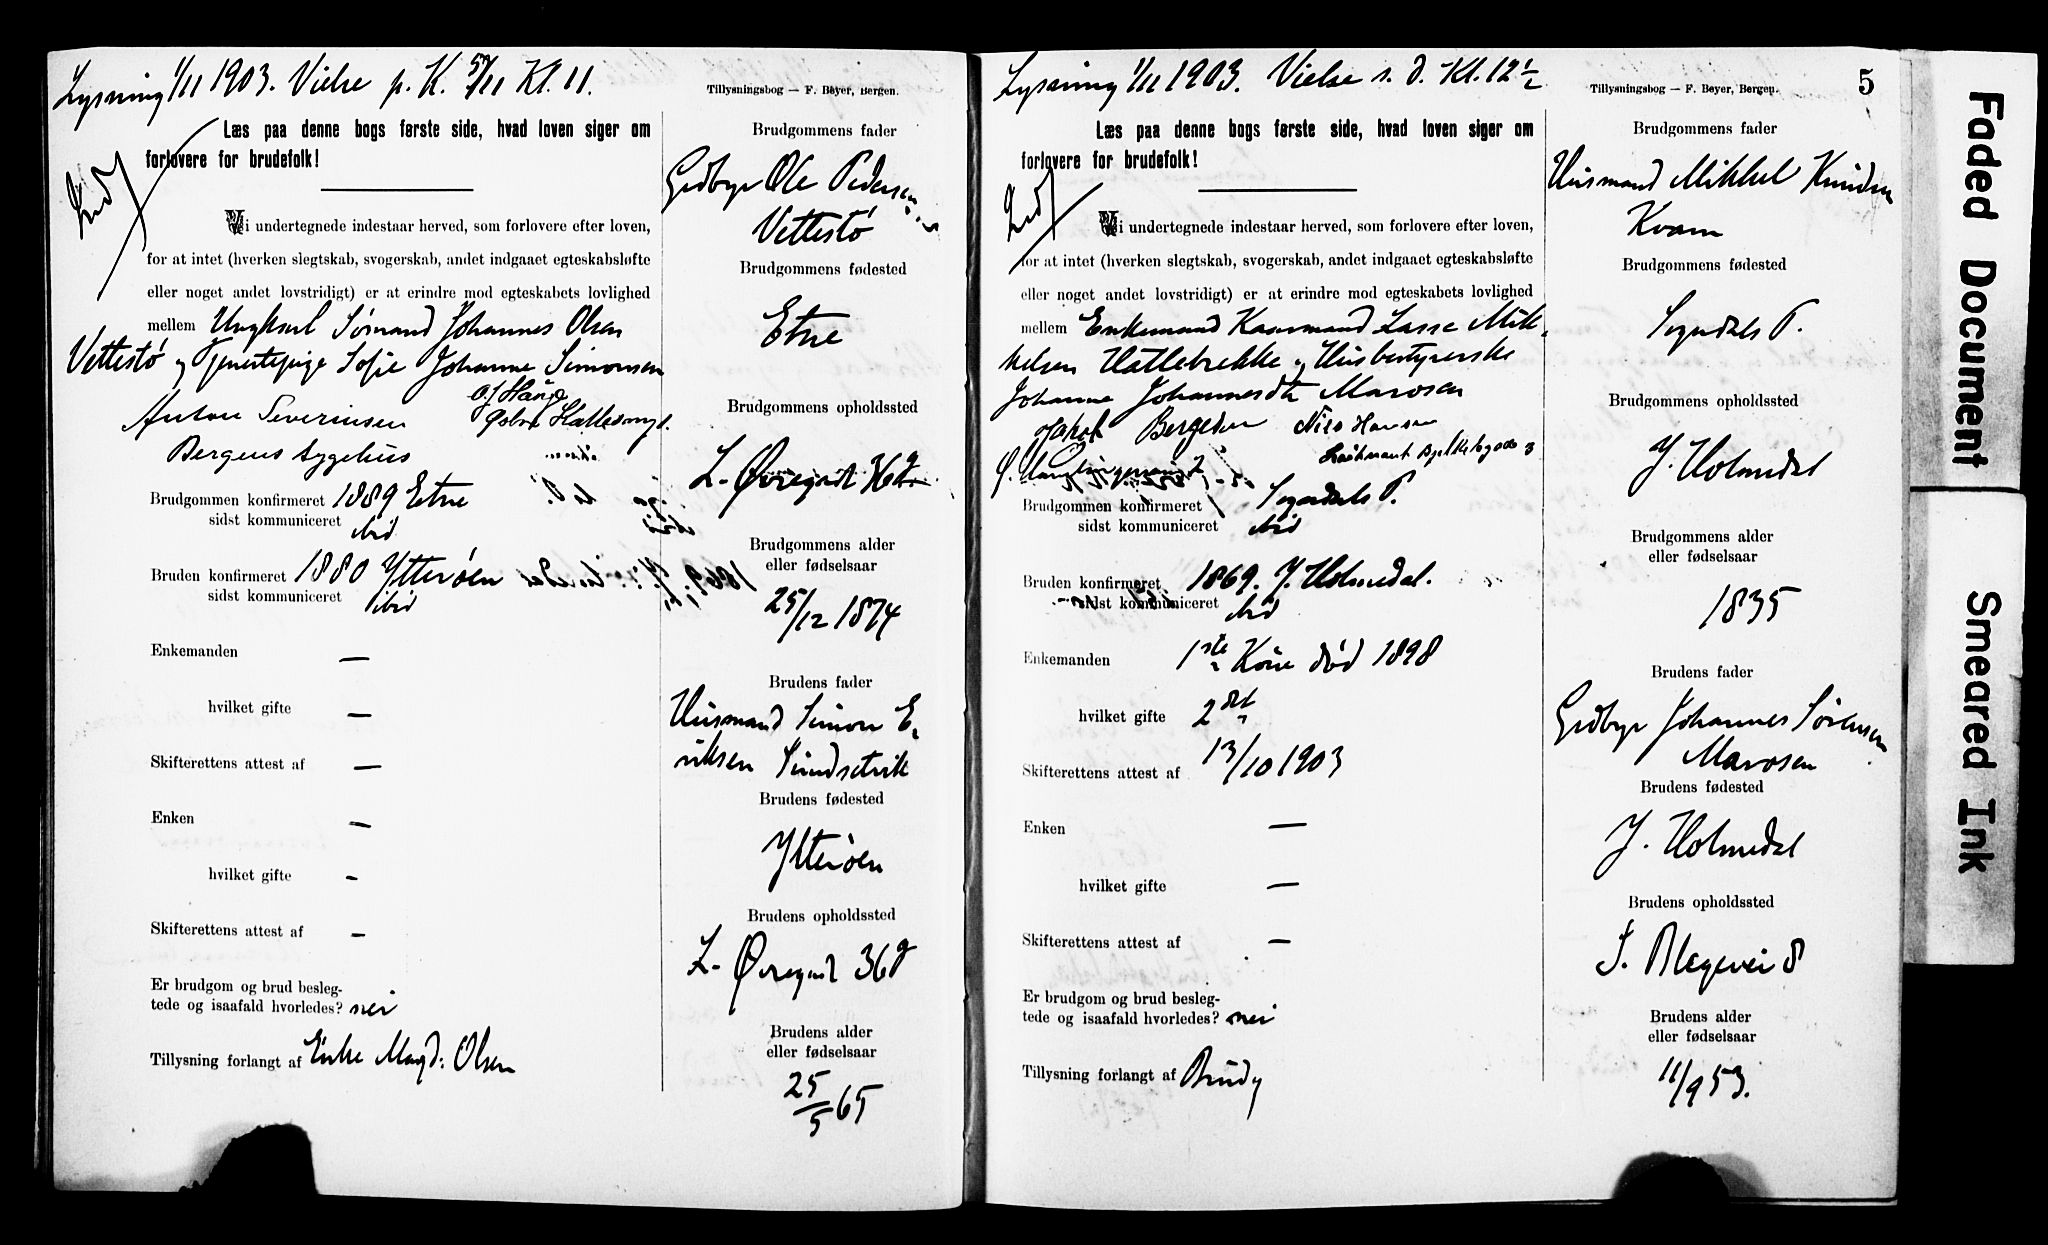 Lysning 1/11 1903. Vielse p. K. 5/11 Kl. 11.
Tillysningsbog — F. Beyer, Bergen.
Læs paa denne bogs første side, hvad loven siger om
forlovere for brudefolk!
Vi undertegnede indestaar herved, som forlovere efter loven,
for at intet (hverken slegtskab, svogerskab, andet indgaaet egteskabsløfte
eller noget andet lovstridigt) er at erindre mod egteskabets lovlighed
mellem Ungksrl Sømand Johannes Olsen
Vettestø og Tjenestepige Sofie Johanne Simonsen
Anton Severinsen
Bergens sygehus
Brudgommen konfirmeret 1889 Etne
sidst kommuniceret ibid
Bruden konfirmeret 1880 Ytterøen
sidst kommuniceret ibid
Enkemanden —
hvilket gifte —
Skifterettens attest af —
Enken —
hvilket gifte —
Skifterettens attest af —
Er brudgom og brud besleg-
tede og isaafald hvorledes? nei
Tillysning forlangt af Enke Magd: Olsen
Brudgommens fader
Grdbgr Ole Pedersen
Vettestø
Brudgommens fødested
Etne
Brudgommens opholdssted
L. Øvregade 36
Brudgommens alder
eller fødselsaar
25/12 1874
Brudens fader
Husmand Simon E-
riksen Sundsetvik
Brudens fødested
Ytterøen
Brudens opholdssted
L. Øvregade 36
Brudens alder
eller fødselsaar
25/5 65
Lysning 1/11 1903. Vielse s. d. Kl. 12 1/2
Tillysningsbog — F. Beyer, Bergen.
5
Læs paa denne bogs første side, hvad loven siger om
forlovere for brudefolk!
Vi undertegnede indestaar herved, som forlovere efter loven,
for at intet (hverken slegtskab, svogerskab, andet indgaaet egteskabsløfte
eller noget andet lovstridigt) er at erindre mod egteskabets lovlighed
mellem Enkemand Kaarmand Lasse Mik-
kelsen Hatlebrekke og Husbestyrerske
Johanne Johannesdtr Marosen
Jakob Nils Hansen
Brudgommen konfirmeret Sogndals P.
sidst kommuniceret ibid
Bruden konfirmeret 1869. Y. Holmedal.
sidst kommuniceret ibid
Enkemanden 1ste Kone død 1898
hvilket gifte 2det
Skifterettens attest af 13/10 1903
Enken —
hvilket gifte —
Skifterettens attest af —
Er brudgom og brud besleg-
tede og isaafald hvorledes? nei
Tillysning forlangt af Brudg
Brudgommens fader
Husmand Mikkel Knudsen
Kvam
Brudgommens fødested
Sogndals P.
Brudgommens opholdssted
Y. Holmedal
Brudgommens alder
eller fødselsaar
1835
Brudens fader
Grdbgr Johannes Sørensen
Marosen
Brudens fødested
Y. Holmedal
Brudens opholdssted
S. Blegevei 8
Brudens alder
eller fødselsaar
11/9 53.
Faded Document
Smeared Ink